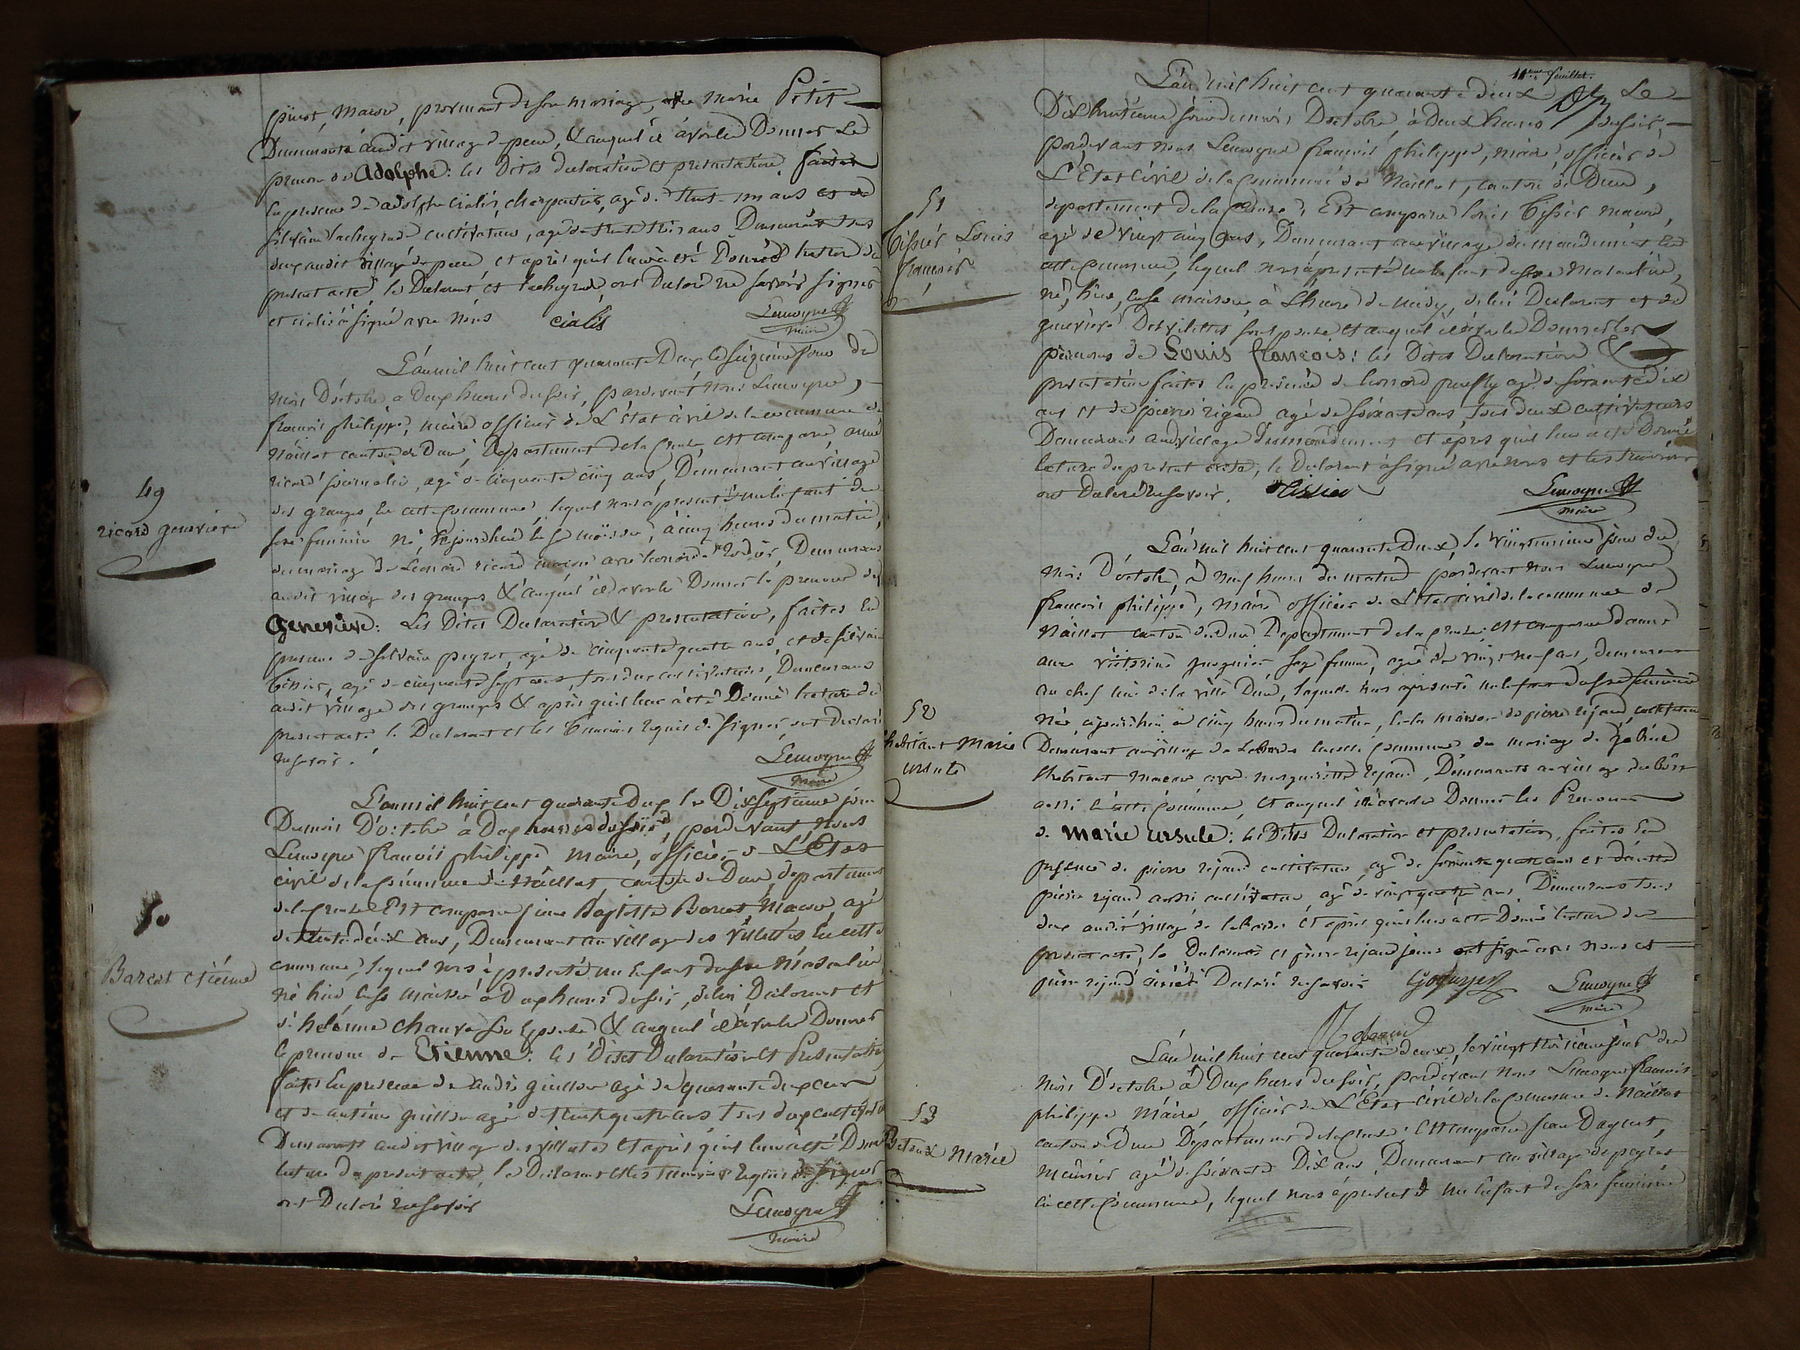 pinot, Maçon, provenant de son mariage, avec Marie Petit
Demeurants audit village de peu, & auquel il a voulu Donner Le
prenom de Adolphe: les dites declaration et présentation faites
En presence de adolphe cialis, charpentier, agé de Trente un ans et de
silvain cultivateur, agé de trente trois ans Demeurant tous
deux audit village de peu et après qu'il leur a été Donné lecture du
present acte le Declarant et ont Déclaré ne savoir signer
et cialis a signé avec Nous cialis Lemoyne
maire
L'an mil huit cent quarante Deux le seizieme jour du
Mois D'octobre a Deux heures du soir, pardevant Nous Lemoyne,
françois philippe, maire officier de L'Etat civil de la commune de
Naillat canton de Dun, Département de la Creuse est comparu anné
49
ricard genevieve
ricard journalier, agé de cinquante cinq ans, Demeurant au village
des granges, En cette commune, lequel nous a presenté un Enfant du
sexe feminin né aujourdhui à cinq heures du matin,
du mariage de Léonard ricard maçon avec léonarde Demeurans
audit village des granges & auquel il a voulu Donner le prenom de
Genevieve: Les Dites Declaration & presentation, faites En
presence de silvain peyrot, agé de cinquante quatre ans, et de silvain
tissier, agé de cinquante sept ans, tous deux cultivateurs, Demeurans
audit village des granges & après qu'il leur a été Donné lecture du
present acte le Declarant et les Temoins requis de signer, ont Declaré
ne savoir. Lemoyne
maire
L'an mil huit cent quarante Deux le Dixseptieme jour
Du mois D'octobre à Deux heures du soir, pardevant Nous
Lemoyne françois philippe Maire, officier de L'Etat
civil de la commune de Naillat, canton de Dun, departement
50
Barcat etienne
de la Creuse Est comparu jean Baptiste Barcat Maçon agé
de trente deux ans, Demeurant au village des villettes En cette
commune, lequel nous a presenté un Enfant du sexe Masculin,
né hier En sa maison à Deux heures du soir, de lui Déclarant et
d'heleinne chauvat son Epouse & auquel il a voulu Donner
le prenom de Etienne: les Dites Declaration et Presentation
faites En presence de andré guillon agé de quarante deux ans
et de antoine guillon agé de trente quatre ans tous deux cultivateurs
Demeurant audit village des villettes et après qu'il leur a été Donné
lecture du present acte, le Declarant et les temoins Requis de signer
ont Declaré ne savoir Lemoyne
maire
11eme feuillet.
L'an mil huit cent quarante deux Le
Dixhuitieme jour du mois D'octobre à deux heures du soir,
pardevant nous Lemoyne françois philippe, maire, officier de
L'Etat Civil de la Commune de Naillat, canton de Dun,
51
tissier Louis
françois
departement de la Creuse, Est comparu louis tissier maçon,
agé de vingt cinq ans, Demeurant au village de En
cette Commune, lequel nous a presenté un Enfant du sexe Masculin,
né, hier, En sa maison à L'heure de midy, de lui Declarant et de
genevieve Desvilettes son epouse et auquel il a voulu Donner les
prenoms de Louis françois: les Dites Declaration &
presentation faites En presence de leonard agé de soixante dix
ans et de pierre rigaud agé de soixante ans, tous deux cultivateurs
Demeurans audit village et après qu'il leur a été Donné
lecture du present acte, le Declarant a signé avec nous et les temoins
ont Declaré ne savoir. tissier Lemoyne
maire
L'an mil huit cent quarante Deux, le vingtunieme jour du
Mois D'octobre, à Neuf heures du matin pardevant nous Lemoyne
françois philippe, Maire officier de L'Etat civil de la commune de
Naillat canton de Dun Departement de la Creuse. est comparu dame
anne victorine sage femme, agée de vingt neuf ans, demeurant
au chef lieu de la ville Dun, laquelle nous a presenté un Enfant du sexe feminin
52
habitant Marie
ursule
née aujourdhui à cinq heures du matin, En la maison de pierre rejaud, cultivateur
Demeurant au village de Laborde En cette commune du mariage de
habitant maçon avec marguerite rejaud, Demeurants au village
aussi En cette commune, et auquel il a voulu Donner les Prenoms
de Marie ursule: les Dites Declaration et presentation, faites En
presence de pierre rejaud cultivateur, agé de soixante quatre ans et d'autre
pierre rejaud aussi cultivateur agé de vingt quatre ans, Demeurant tous
deux audit village de laborde et après qu'il leur a été Donné lecture du
present acte, la Declarante et pierre rejaud jeune ont signé avec nous et
pierre rejaud ainé Declaré ne savoir Lemoyne
maire
Rejaud
L'an mil huit cent quarante deux, le vingt troisieme jour du
Mois D'octobre à Deux heures du soir, pardevant Nous Lemoyne françois
53
Marie
philippe Maire, officier de L'Etat Civil de la Commune de Naillat
canton de Dun Departement de la Creuse: est comparu jean
agé de soixante Dix ans, Demeurant au village
En cette Commune, lequel nous a presenté un Enfant du sexe feminin